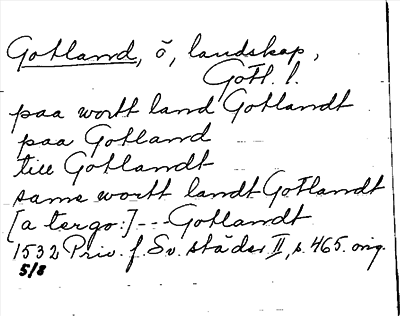 Gotland, ö, landskap,
Gotl. l.
paa wortt land Gotlandt
paa Gotland
till Gotlandt
same wortt landt Gotlandt
[a tergo:] --- Gotlandt
1532 Priv. f. Sv. städer II, s. 465. orig.
5/8